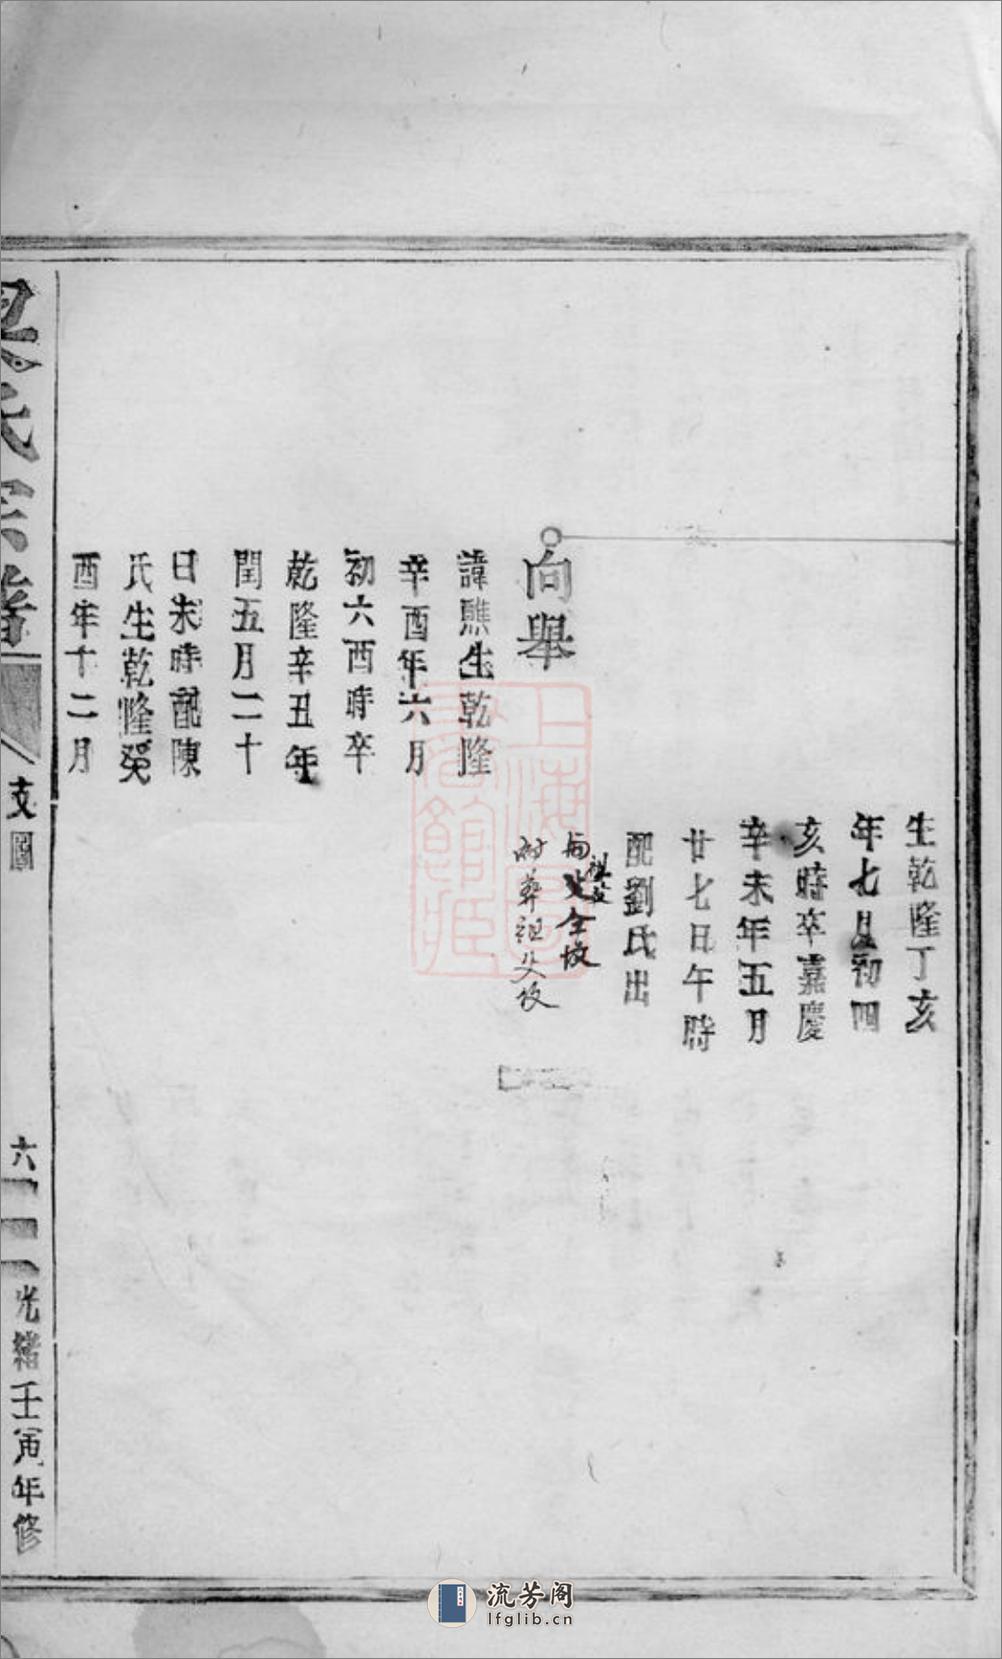 生乾隆丁亥
年七月初四
亥時卒嘉慶
辛未年五月
廿七日午時
配劉氏出
祔葬祖父坟
向舉
諱驥生乾隆
辛酉年六月
初六酉時卒
乾隆辛丑年
閏五月二十
日未時配陳
氏生乾隆癸
酉年十二月
氏宗譜
支圖
六
光緒壬寅年修
上海圖書館藏
流芳阁
lfglib.cn